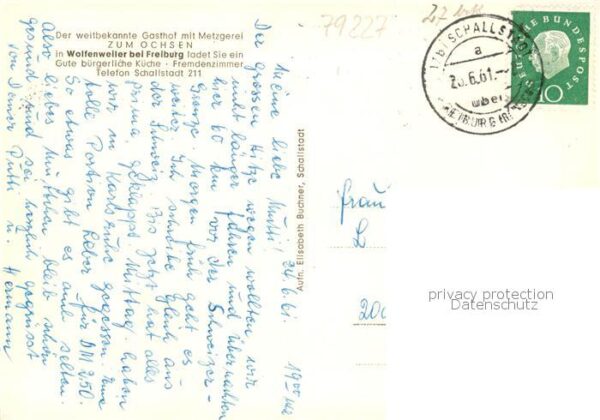 Der weitbekannte Gasthof mit Metzgerei
ZUM OCHSEN
in Wolfenweiler bei Freiburg ladet Sie ein
Gute bürgerliche Küche · Fremdenzimmer
Telefon Schallstadt 211
79227
27
(17b) SCHALLSTADT
a
6.61.-
über
FREIBURG (BREISGAU)
DEUTSCHE BUNDESPOST
10
Meine liebe Mutti! 24.6.61. 19⁰⁰ Uhr
Der grossen Hitze wegen wollten wir
nicht länger fahren und übernachten
hier 60 km vor der Schweizer-
Grenze. Morgen früh geht es
weiter. Ich schreibe gleich aus
der Schweiz. Bis jetzt hat alles
prima geklappt. Mittag haben
wir in Karlsruhe gegessen. Eine
tolle Portion Leber für DM 2.50.
So etwas gibt es auch selten.
Also liebes Muttchen bleib schön
gesund und sei herzlich gegrüsst
von Deiner Putti u. Hermann
Aufn. Elisabeth Buchner, Schallstadt
Frau
L
privacy protection
Datenschutz